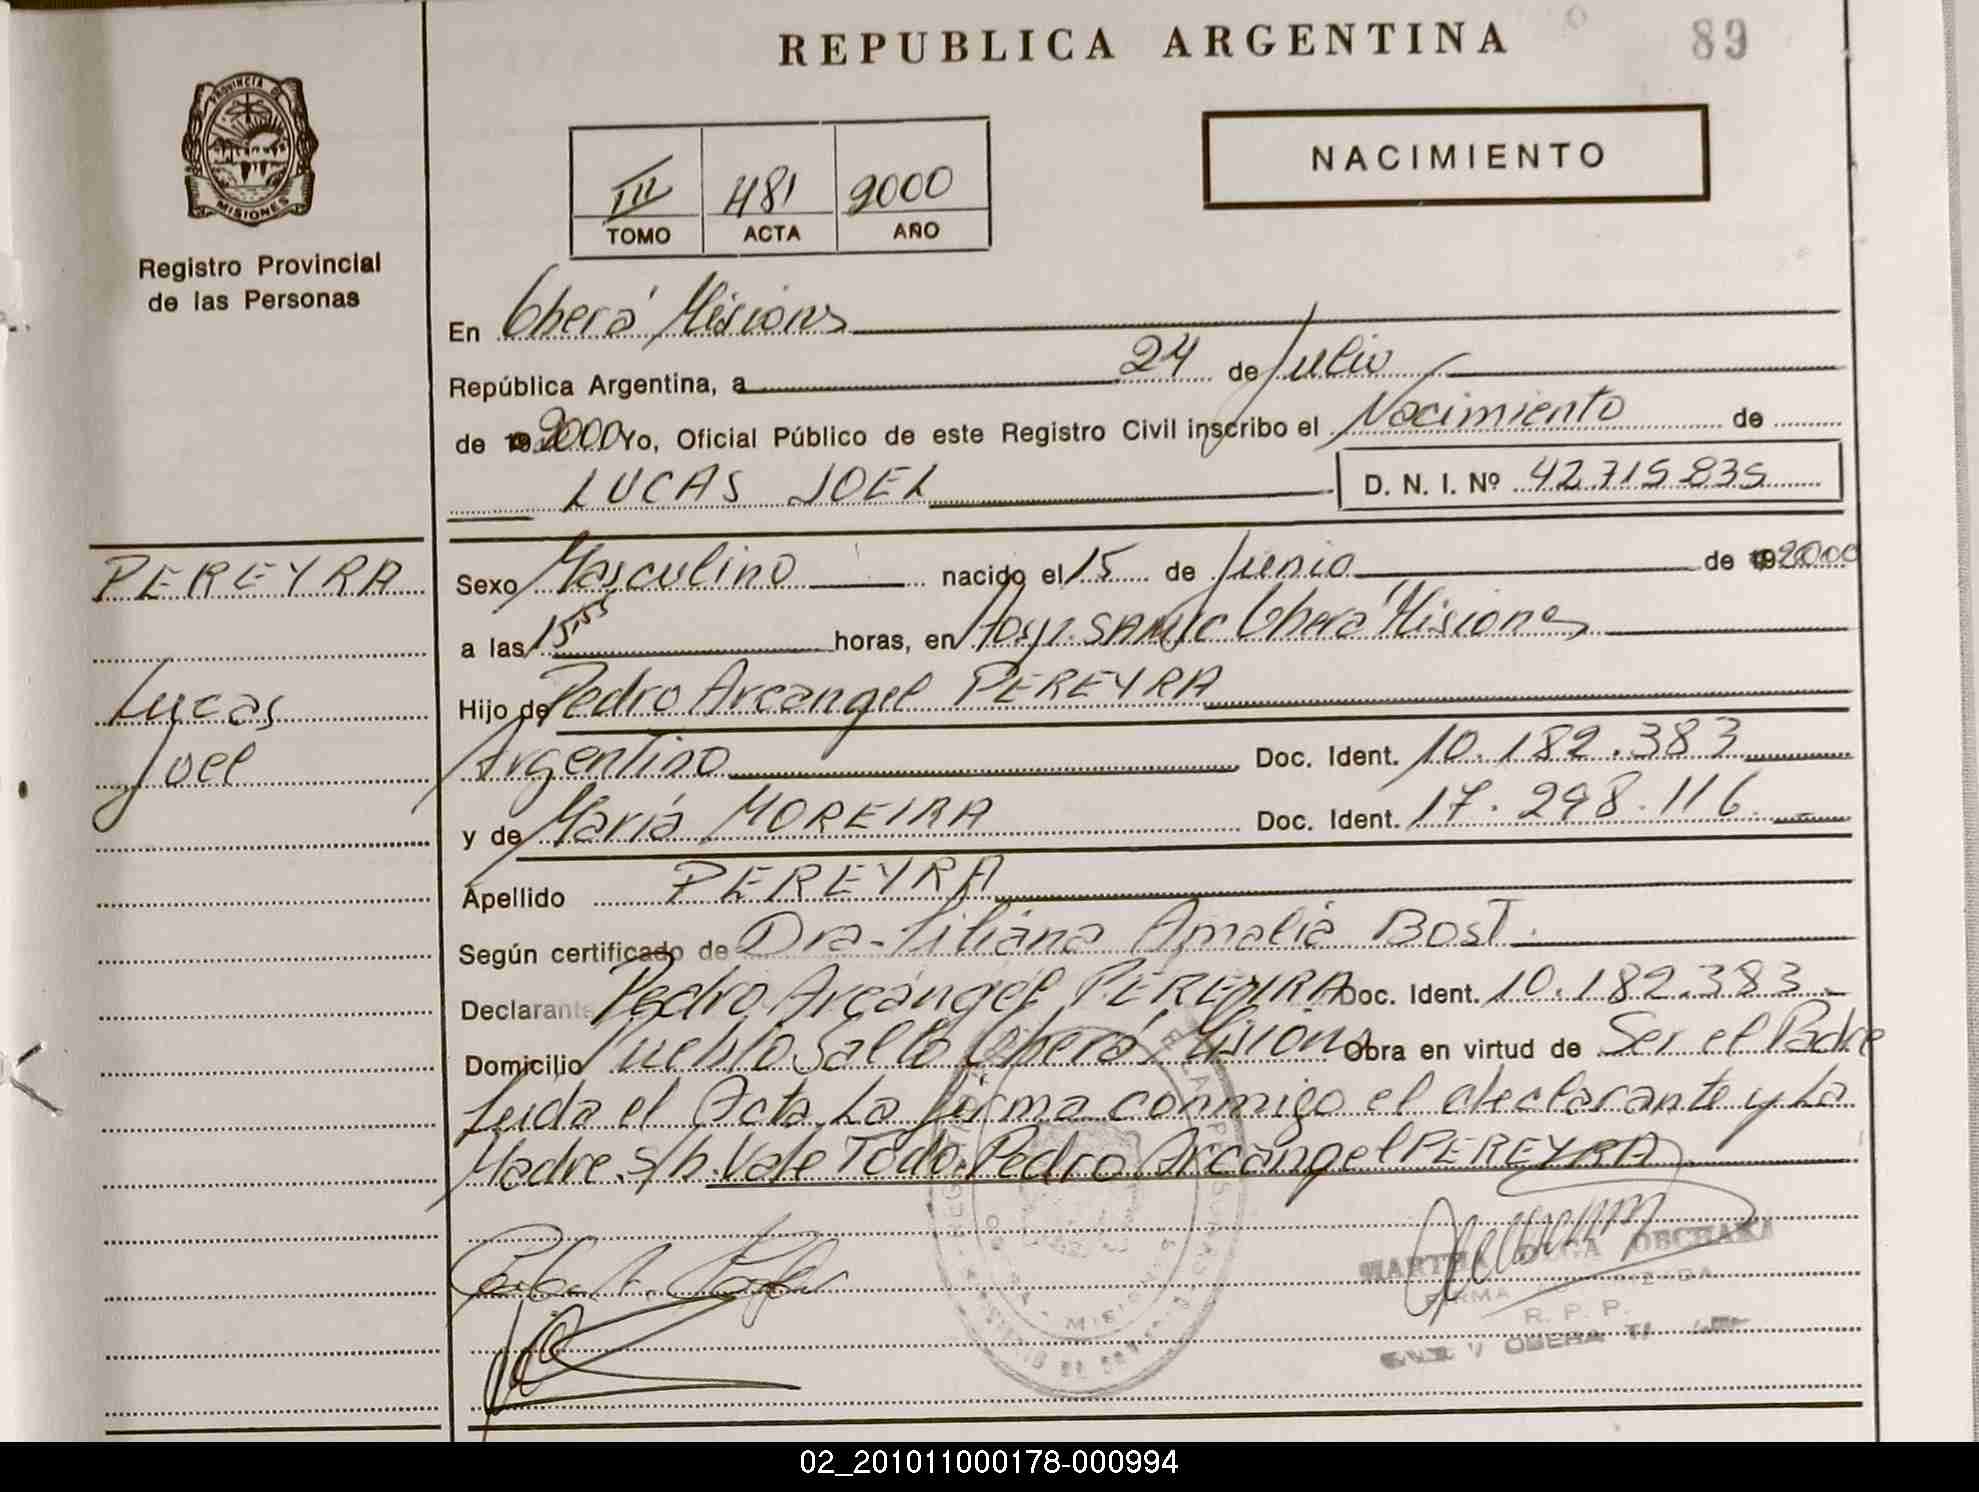 REPUBLICA ARGENTINA
89
PROVINCIA DE
MISIONES
Registro Provincial
de las Personas
NACIMIENTO
III 481 2000
TOMO ACTA AÑO
En Oberá Misiones
República Argentina, a 24 de Julio
de 19 2000 Yo, Oficial Público de este Registro Civil inscribo el Nacimiento de
LUCAS JOEL D. N. I. Nº 42.715.835
PEREYRA
Lucas
Joel
Sexo Masculino nacido el 15 de Junio de 19 2000
a las 15,55 horas, en Hosp. SAMIC Oberá Misiones
Hijo de Pedro Arcangel PEREYRA
Argentino Doc. Ident. 10.182.383
y de María MOREIRA Doc. Ident. 17.298.116
Apellido PEREYRA
Según certificado de Dra. Liliana Amalia BOST.
Declarante Pedro Arcángel PEREYRA Doc. Ident. 10.182.383
Domicilio Pueblo Salto Oberá Misiones Obra en virtud de Ser el Padre
Leida el Acta La firma conmigo el declarante y La
Madre. S/b. Vale Todo. Pedro Arcangel PEREYRA
MARTHA OLGA
FIRMA AUTORIZADA
R. P. P.
OBERA
02_201011000178-000994